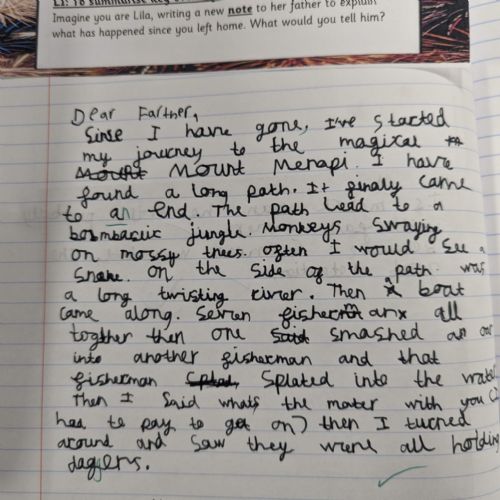 Imagine you are Lila, writing a new note to her father to explain
what has happened since you left home. What would you tell him?
Dear Farther,
Sinse I have gone, I've started
my journey to the magical
Mount Merapi. I have
found a long path. It finaly came
to an end. The path lead to a
bombastic jungle. Monkeys swaying
on mossy trees. often I would see a
Snake. on the side of the path was
a long twisting river. Then A boat
came along. Seven all
togther then one said smashed an oar
into another fisherman and that
fisherman Splated into the water
Then I said whats the mater with you
has to pay to get on) then I turned
around and saw they were all holding
daggers.